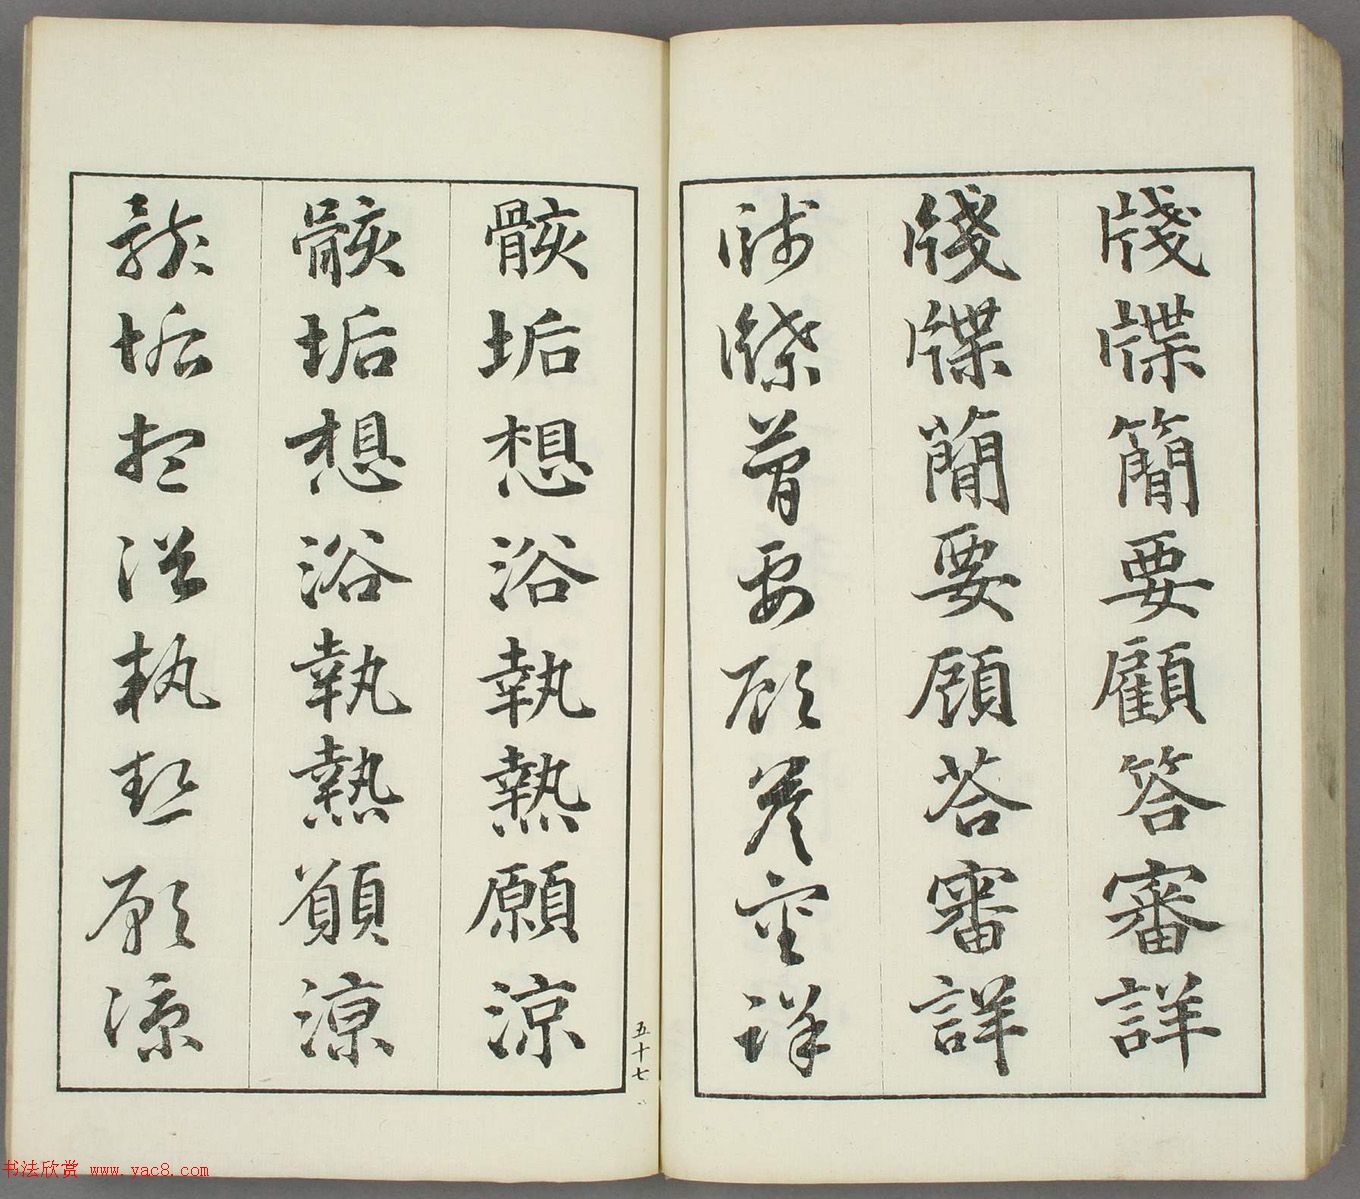 牋牒簡要顧答審詳
牋牒蕳要顧荅審詳
牋牒簡要顧答審詳
骸垢想浴執熱願涼
骸垢想浴執熱願涼
骸垢想浴執熱願涼
五十七
书法欣赏 www.yac8.com